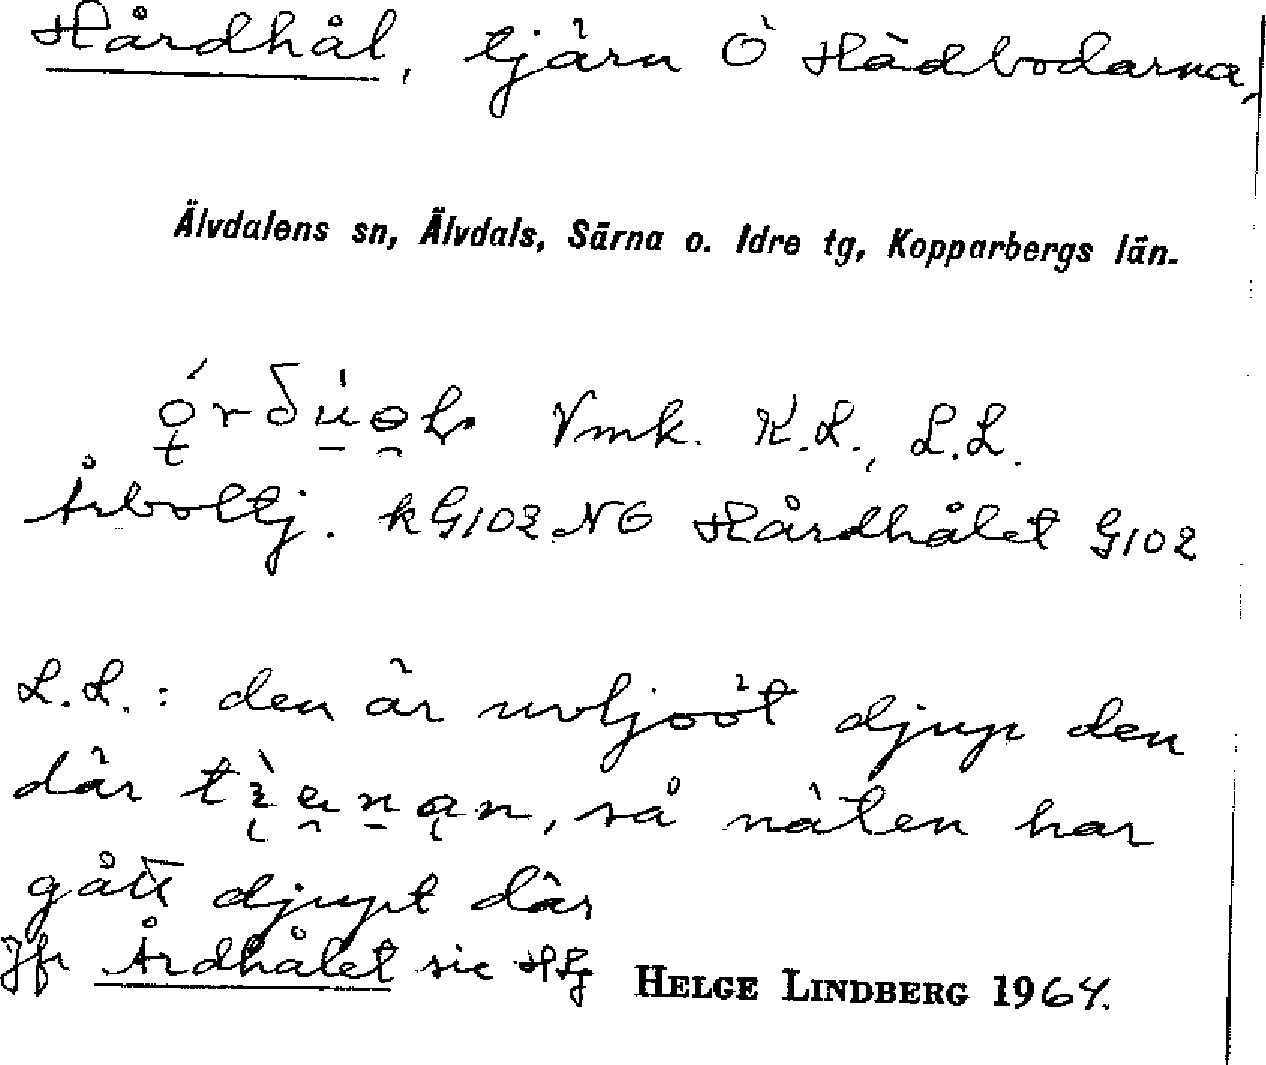 Hårdhål, tjärn Ö Hädbodarna,
Älvdalens sn, Älvdals, Särna o. Idre tg, Kopparbergs län.
Vmk. K.L., L.L.
Årboltj. kG102 NO Hårdhålet G102
L.L.: den är djup den
där så näten har
gått djupt där
Jfr Årdhålet sic HLg HELGE LINDBERG 1964.